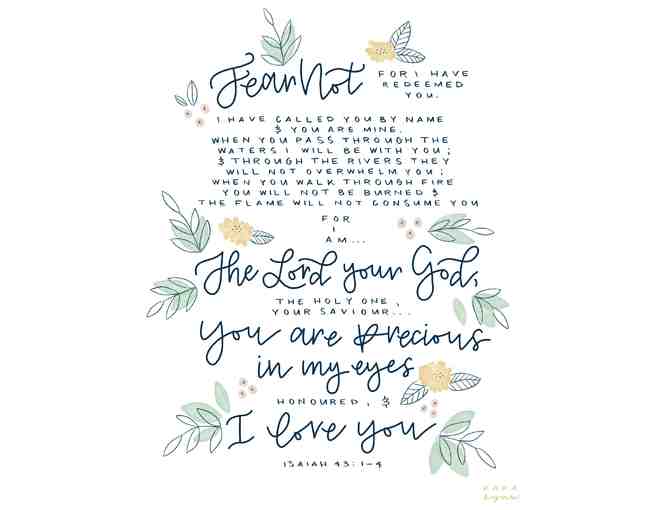 Fear Not
FOR I HAVE
REDEEMED
YOU.
I HAVE CALLED YOU BY NAME
& YOU ARE MINE.
WHEN YOU PASS THROUGH THE
WATERS I WILL BE WITH YOU;
& THROUGH THE RIVERS THEY
WILL NOT OVERWHELM YOU;
WHEN YOU WALK THROUGH FIRE
YOU WILL NOT BE BURNED &
THE FLAME WILL NOT CONSUME YOU
FOR
I
AM...
The Lord your God,
THE HOLY ONE,
YOUR SAVIOUR...
You are precious
in my eyes
HONOURED, &
I love you
ISAIAH 43:1-4